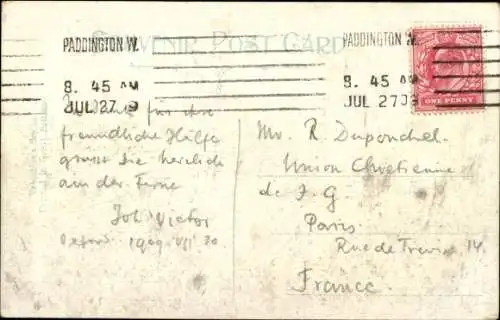 PADDINGTON W. PADDINGTON W.
SOUVENIR POST CARD
8. 45 AM 8. 45 AM
JUL 27 09 JUL 27 09
ONE PENNY
für ihre
freundliche Hilfe
grüsst Sie herzlich
aus der Ferne
Joh Victor
Oxford 1909 VII 20
Mr. R. Duponchel
Union Chretienne
de J. G.
Paris
Rue de Trevise 14
France.